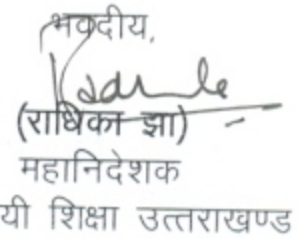 भवदीय,
(राधिका झा)
महानिदेशक
यी शिक्षा उत्तराखण्ड